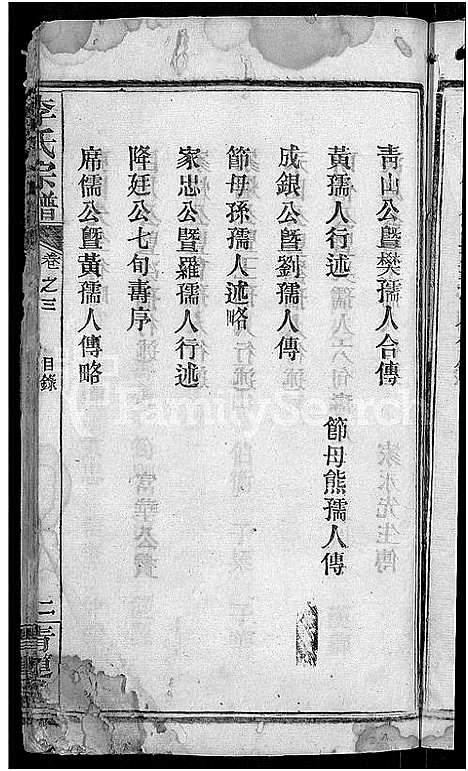 青山公曁樊孺人合傳
黃孺人行述 節母熊孺人傳
成銀公曁劉孺人傳
節母孫孺人述略
家忠公曁羅孺人行述
降廷公七旬壽序
席儒公曁黃孺人傳略
李氏宗譜 卷之三 目錄 二
FamilySearch